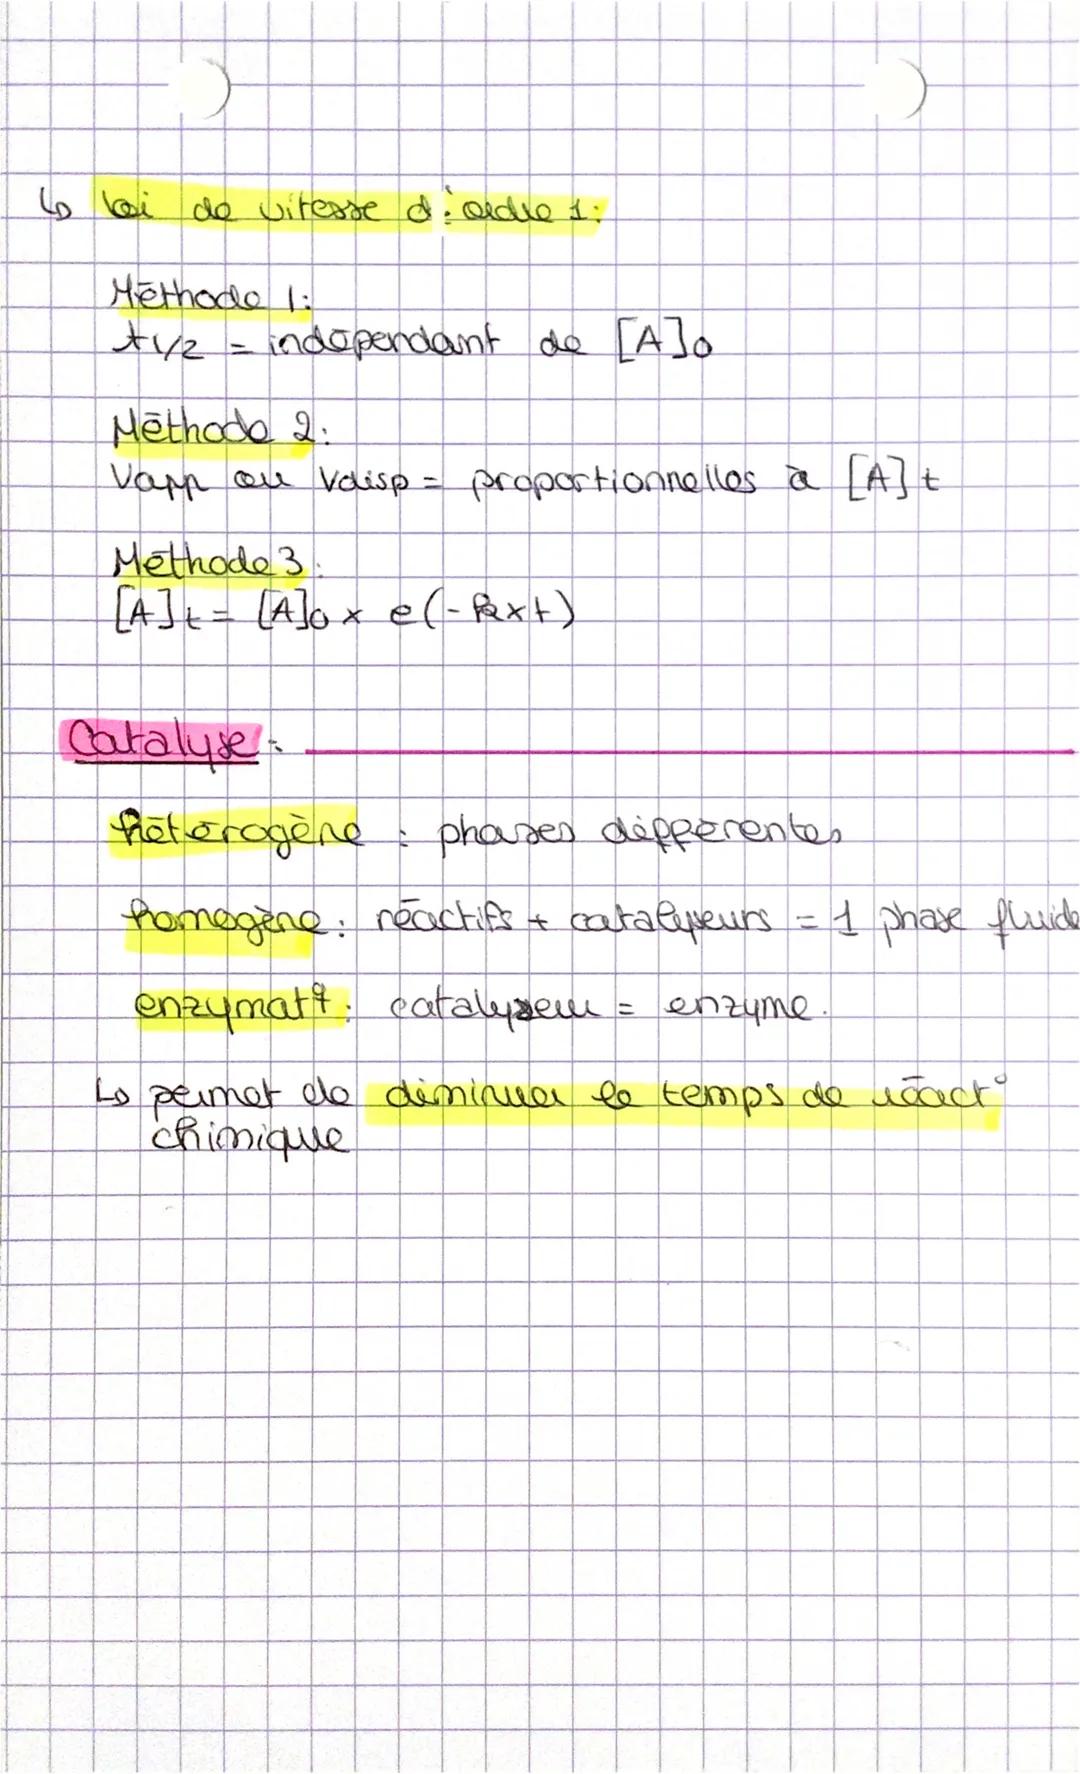 ↳ loi de vitesse d'ordre 1:
Méthode 1:
t1/2 = indépendant de [A]0
Méthode 2:
Vapp ou Vdisp = proportionnelles à [A]t
Méthode 3:
[A]t = [A]0 x e(-kxt)
Catalyse:
hétérogène : phases différentes
homogène: réactifs + catalyseurs = 1 phase fluide
enzymatq: catalyseur = enzyme.
↳ permet de diminuer le temps de réact°
chimique